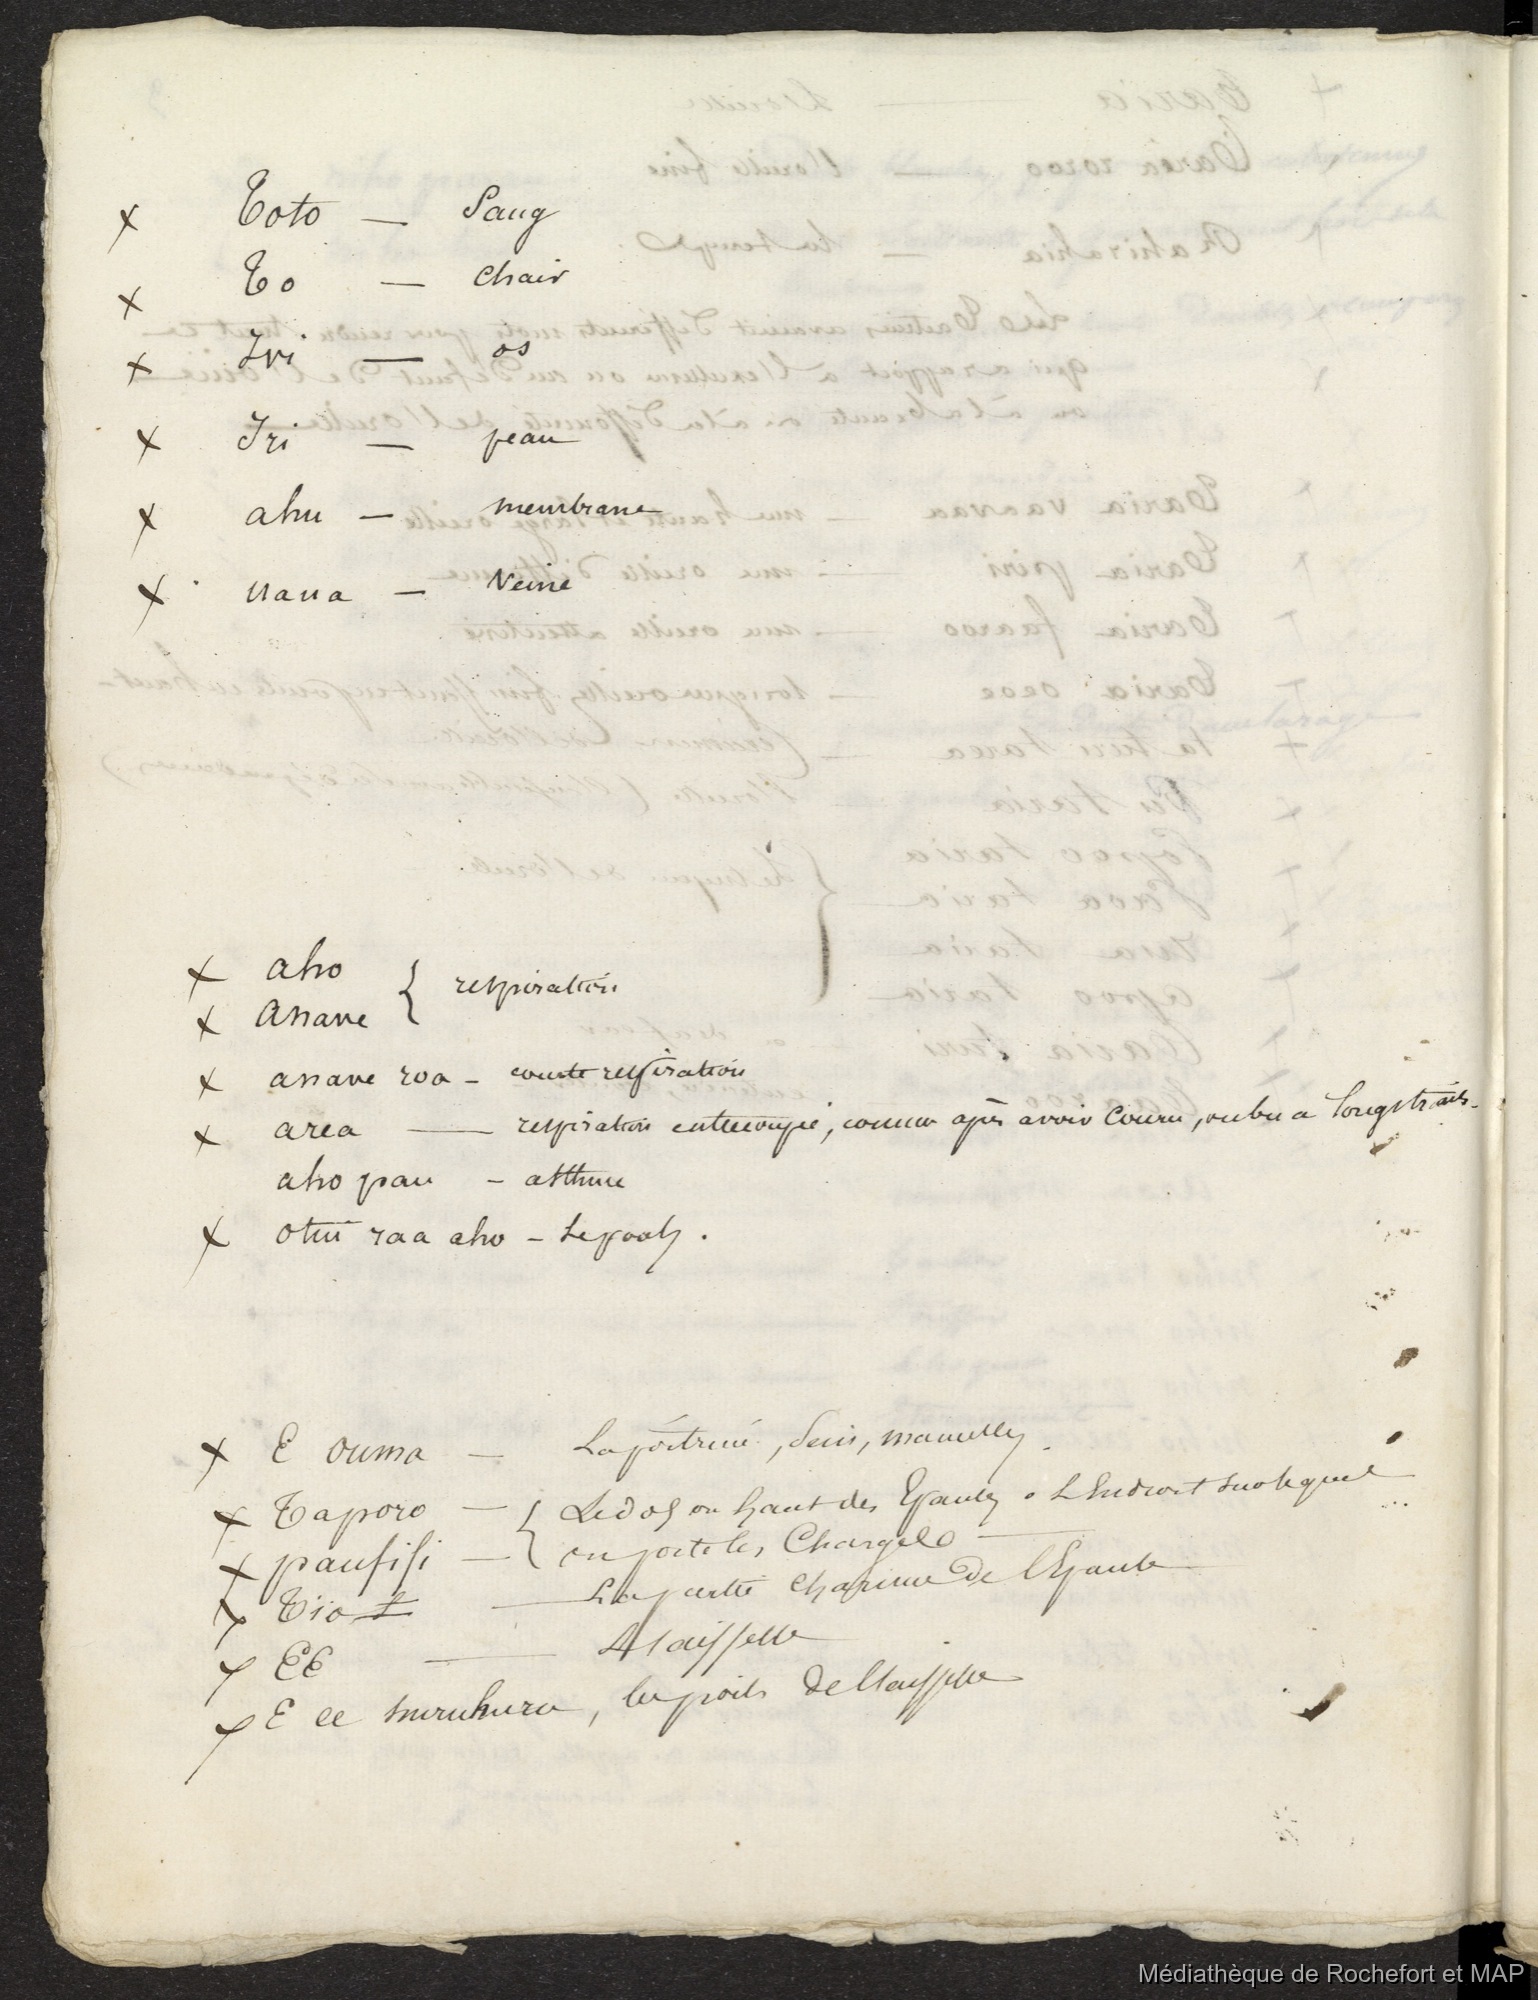 x Toto — Sang
x To — chair
x Ivi — os
x Iri — peau
x ahu — membrane
x uaua — Veine
x aho
x anave { respiration
x anave roa - courte respiration
x area — respiration entrecoupée, comme après avoir couru, ou bu a longs traits.
aho pau - asthme
x otui raa aho - Le pouls.
x E ouma — La poitrine, sein, mamelles
x Taporo — { Le dos ou haut des Epaules o L'Endroit sur lequel
x paufifi — on porte les Charges
x Tio — La partie charnue de l'Epaule
x EE — L'aisselle
x E ee huruhuru, les poils de l'aisselle
Médiathèque de Rochefort et MAP